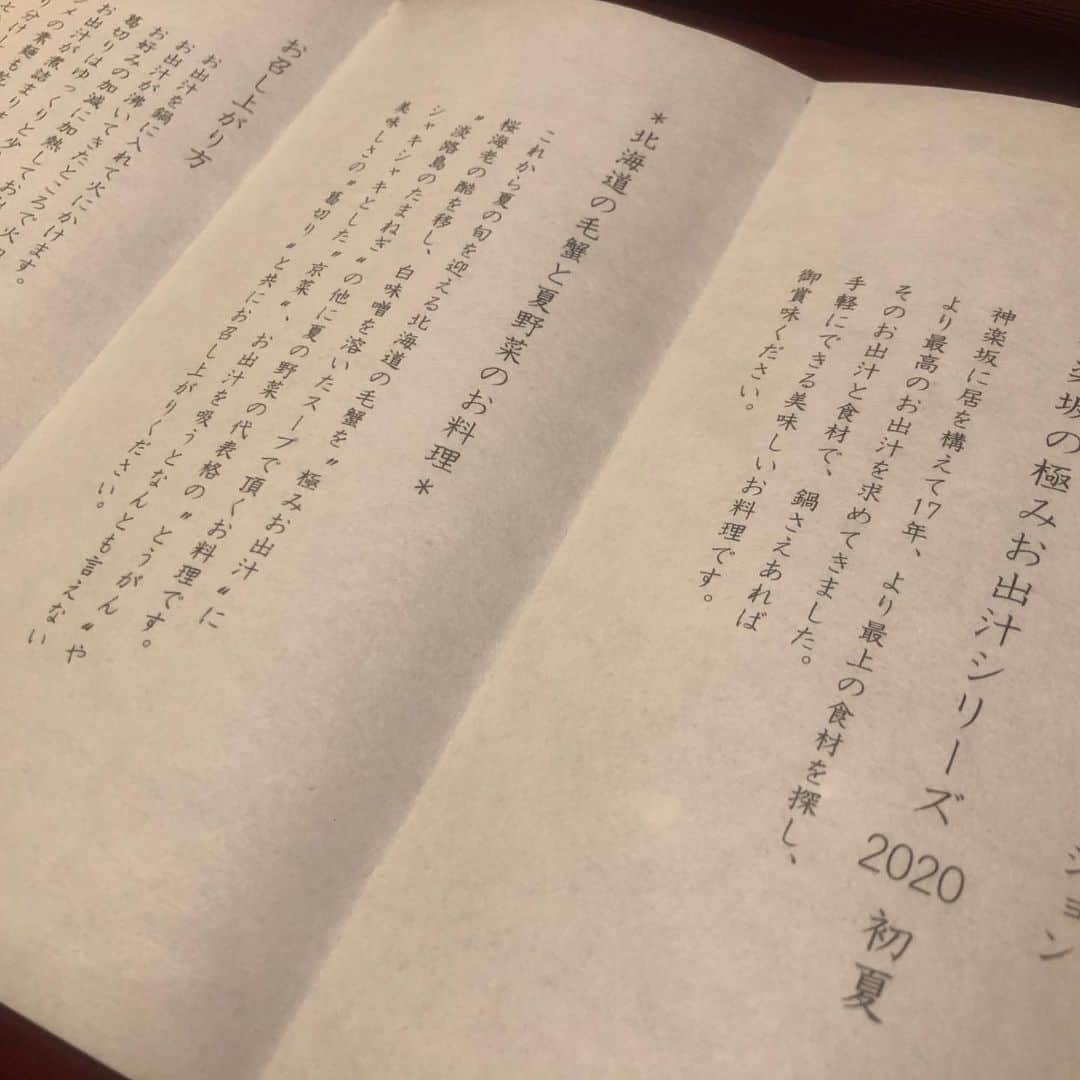 ション
坂の極みお出汁シリーズ 2020 初夏
神楽坂に居を構えて17年、より最上の食材を探し、
より最高のお出汁を求めてきました。
そのお出汁と食材で、鍋さえあれば
手軽にできる美味しいお料理です。
御賞味ください。
*北海道の毛蟹と夏野菜のお料理*
これから夏の旬を迎える北海道の毛蟹を〝極みお出汁〟に
桜海老の酷を移し、白味噌を溶いたスープで頂くお料理です。
〝淡路島のたまねぎ〟の他に夏の野菜の代表格の〝とうがん〟や
シャキシャキとした〝京菜〟、お出汁を吸うとなんとも言えない
美味しさの〝葛切り〟と共にお召し上がりください。
お召し上がり方
お出汁を鍋に入れて火にかけます。
お出汁が沸いてきたところで
お好みの加減に加熱して
葛切りはゆっくりと少し
お出汁が煮詰まり